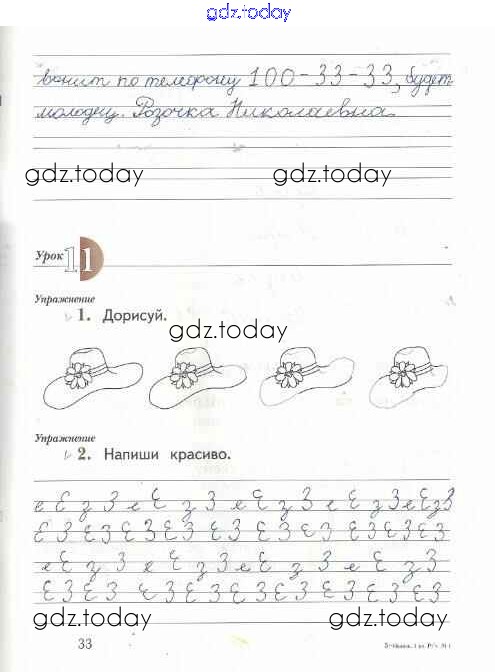 gdz.today
вонит по телефону 100-33-33, будет
молодец. Розочка Николаевна.
gdz.today gdz.today
Урок 11
Упражнение
1. Дорисуй.
gdz.today
Упражнение
2. Напиши красиво.
е Е з З е Е з З е Е з З е Е з З е Е з З
Е З Е З Е З Е З Е З Е З Е З Е З Е З Е З
е Е з З е Е з З е Е з З е Е з З
Е З Е З Е З Е З Е З Е З Е З Е З Е З
gdz.today gdz.today
33